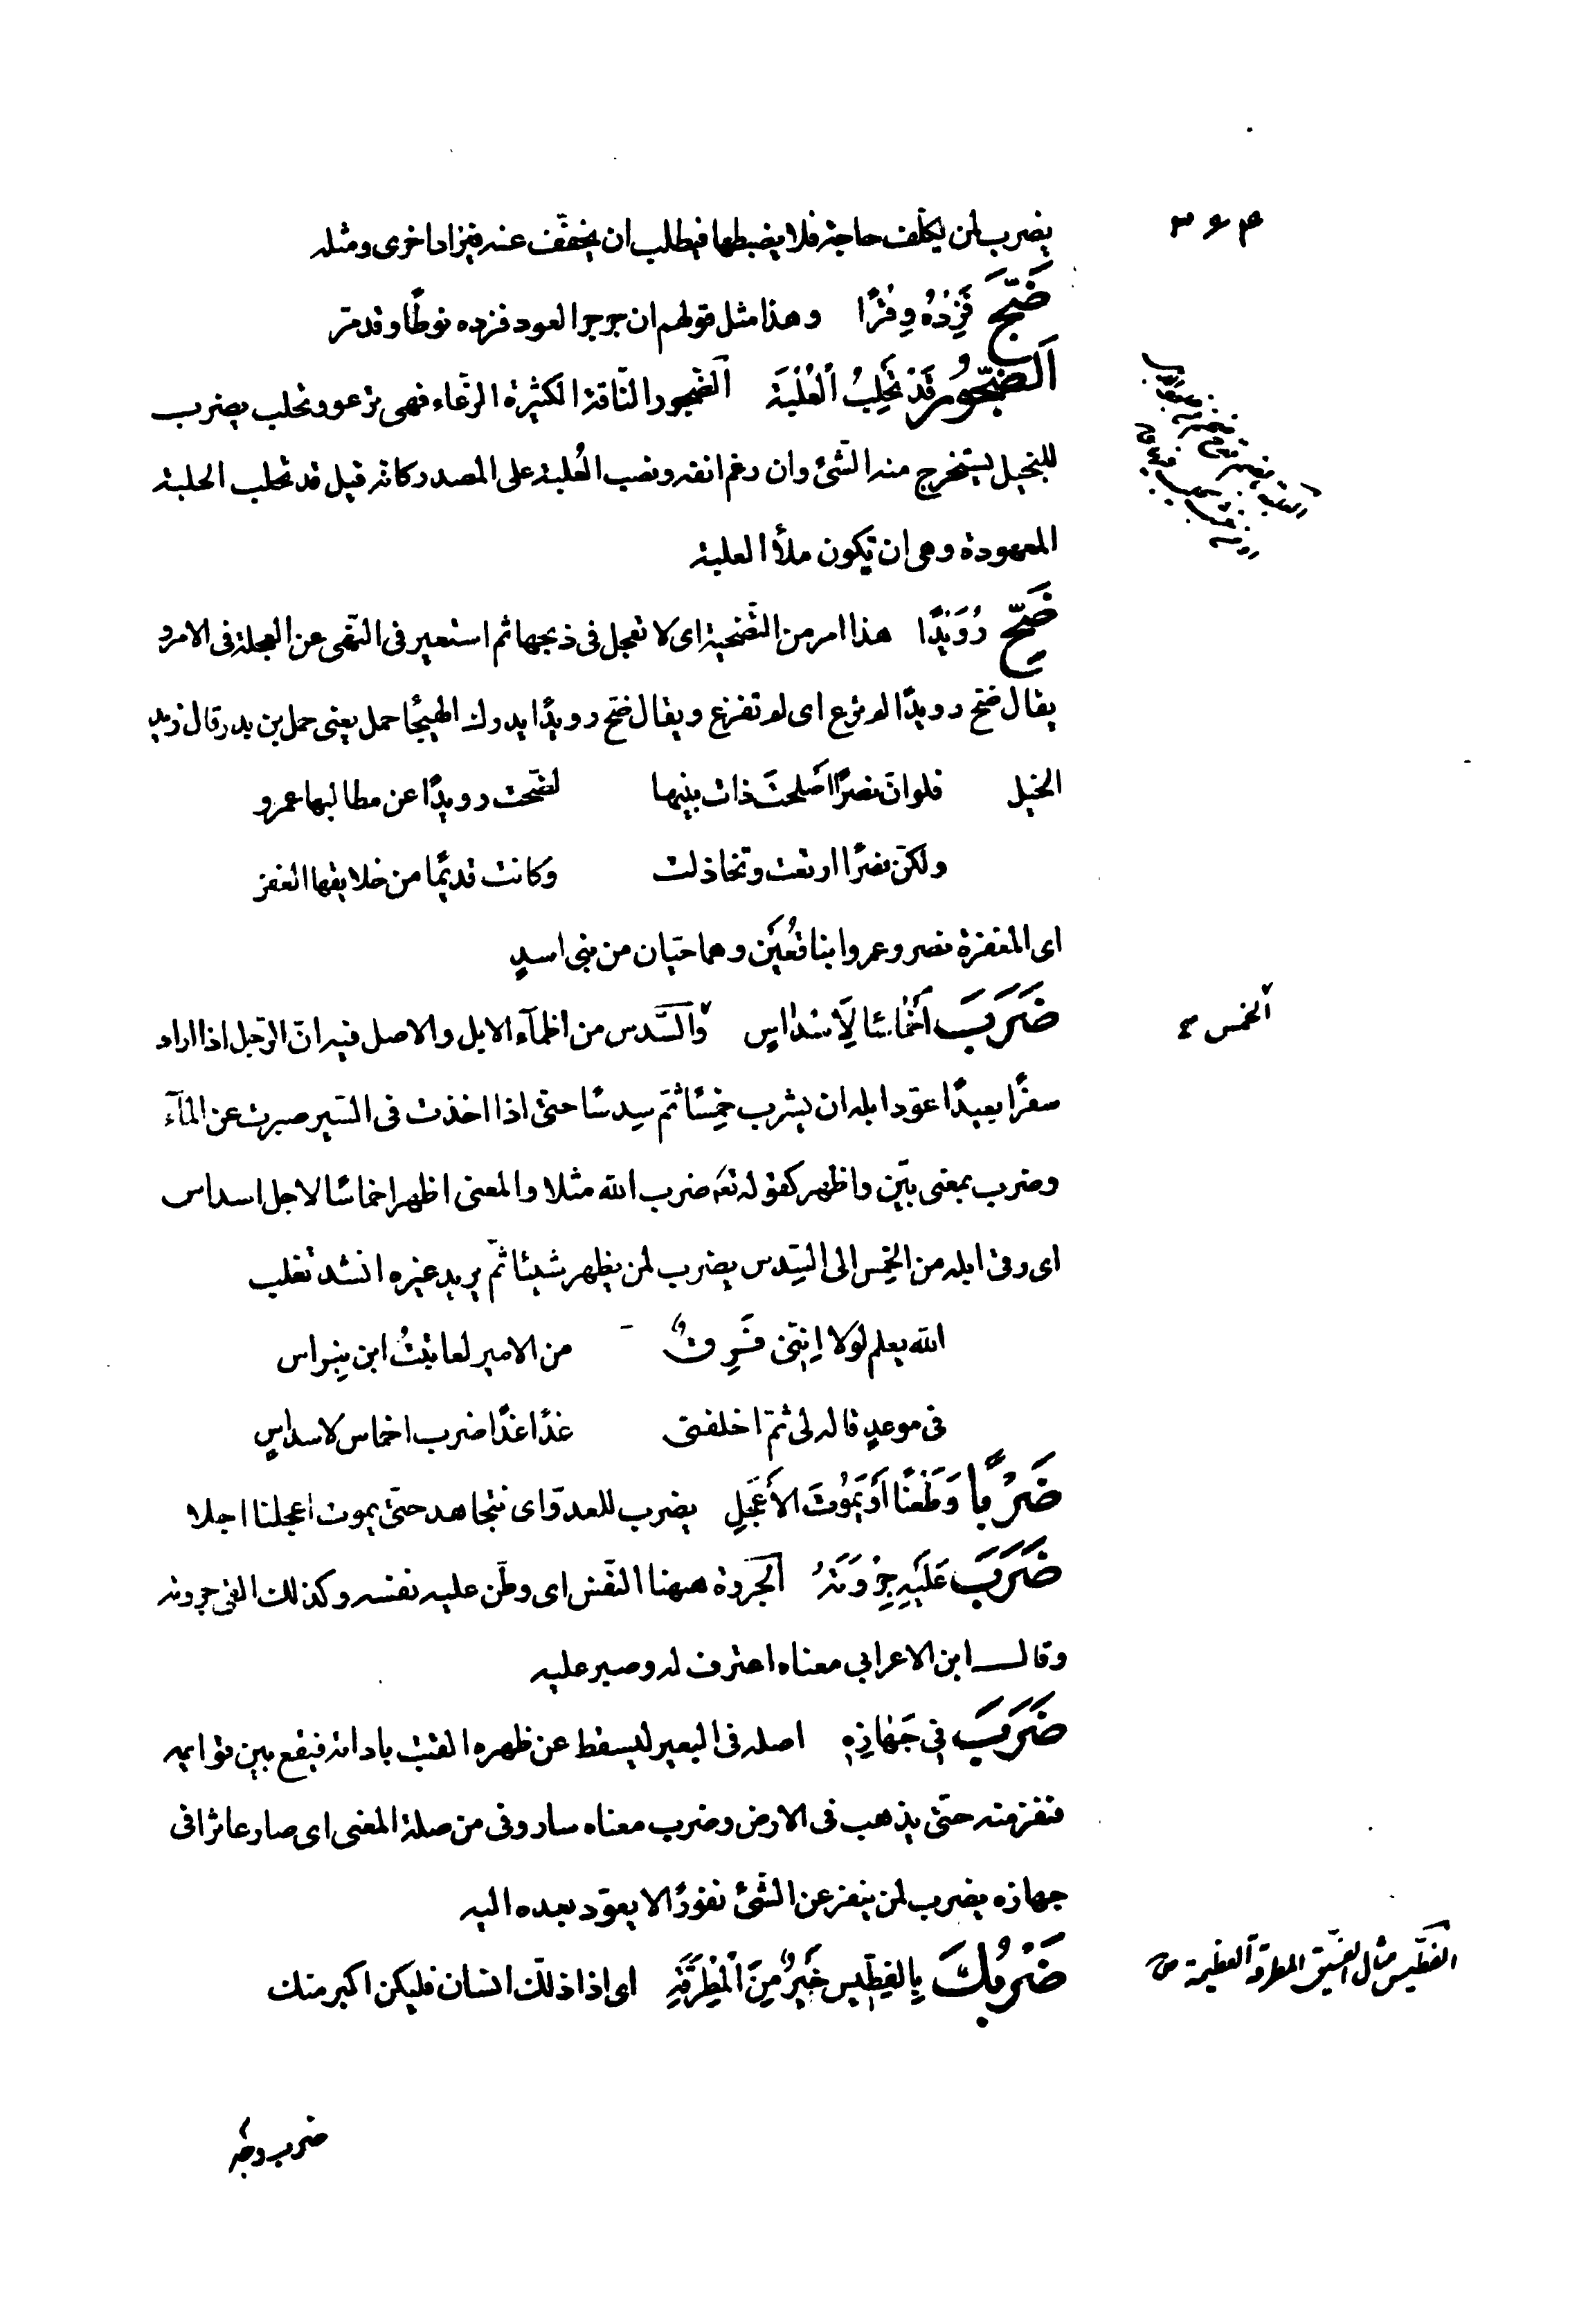 ۳۶۴
يضرب لمن يكلّف حاجة فلا يضبطها فيطلب ان يخفّف عنه فيزاد اخرى ومثله
ضَجَّ فَزِدْهُ وِقْرًا وهذا مثل قولهم ان جرجر العود فزده نوطًا وقد مرّ
اَلضَّجُورُ قَدْ تَحْلِبُ الْعُلْبَةَ الضّجور النّاقة الكثيرة الرّغاء فهى ترغو وتحلب يضرب
للبخيل يستخرج منه الشّئ وان رغم انفه ونصب العُلبة على المصدر كانه قيل قد تحلب الحلبة
المعهودة وهى ان تكون ملأ العلبة
ضَحِّ رُوَيْدًا هذا امر من التّضحية اى لا تعجل فى ذبحها ثم استعير فى النّهى عن العجلة فى الامر و
يقال ضحّ رويدًا لم ترع اى لم تفزع ويقال ضحّ رويدًا يدرك الهيجًا حمل يعنى حمل بن بدر قال زيد
الخيل فلو انّ نصرًا أصلحتْ ذات بينها لضحّت رويدًا عن مطالبها عمرو
ولكنّ نصرًا ارتعت وتخاذلت وكانت قديمًا من خلايقها الغفر
اى المغفرة نصر وعمرو ابنا قُعَين وهما حيّان من بنى اسدٍ
ضَرَبَ أَخْمَاسًا لِأَسْدَاسٍ والسّدس من اظمآء الابل والاصل فيه انّ الرّجل اذا اراد
الخمس
سفرًا بعيدًا عوّد ابله ان يشرب خِمسًا ثمّ سِدسًا حتّى اذا اخذت فى السّير صبرت عن المآء
وضرب بمعنى بيّن واظهر كقوله تعه ضرب الله مثلا والمعنى اظهر اخماسًا لاجل اسداس
اى رقى ابله من الخِمس الى السِّدس يضرب لمن يظهر شيئًا ثمّ يريد غيره انشد ثعلب
الله يعلم لولا اِنّنى فَرِقٌ من الامير لعاتبتُ ابن نِبراس
فى موعدٍ قاله لى ثمّ اخلفنى غدًا غدًا ضرب اخماس لاسداسٍ
ضَرْبًا وَطَعْنًا أَوْ يَمُوتَ الأَعْجَلِ يضرب للعدوّ اى نتجاهد حتّى يموت اعجلنا اجلا
ضَرَبَ عَلَيْهِ جِرْوَتَهُ الجروة ههنا النّفس اى وطّن عليه نفسه وكذلك القى جروته
وقال ابن الاعرابي معناه اعترف له وصبر عليه
ضَرَبَ فِى جَهَازِهِ اصله فى البعير ليسقط عن ظهره القتب باداته فيقع بين قوايمه
فنفر منه حتّى يذهب فى الارض وضرب معناه سار وفى من صلة المعنى اى صار عاثرا فى
جهازه يضرب لمن ينفر عن الشّئ نفورًا لا يعوّد بعده اليه
ضَرْبُكَ بِالفِطِّيسِ خَيْرٌ مِنَ الْمِطْرَقَةِ اى اذا ذلّك انسان فليكن اكبر منك
الفطّيس مثال الفسّيق المطرقة العظيمة ص
ضرب وجه